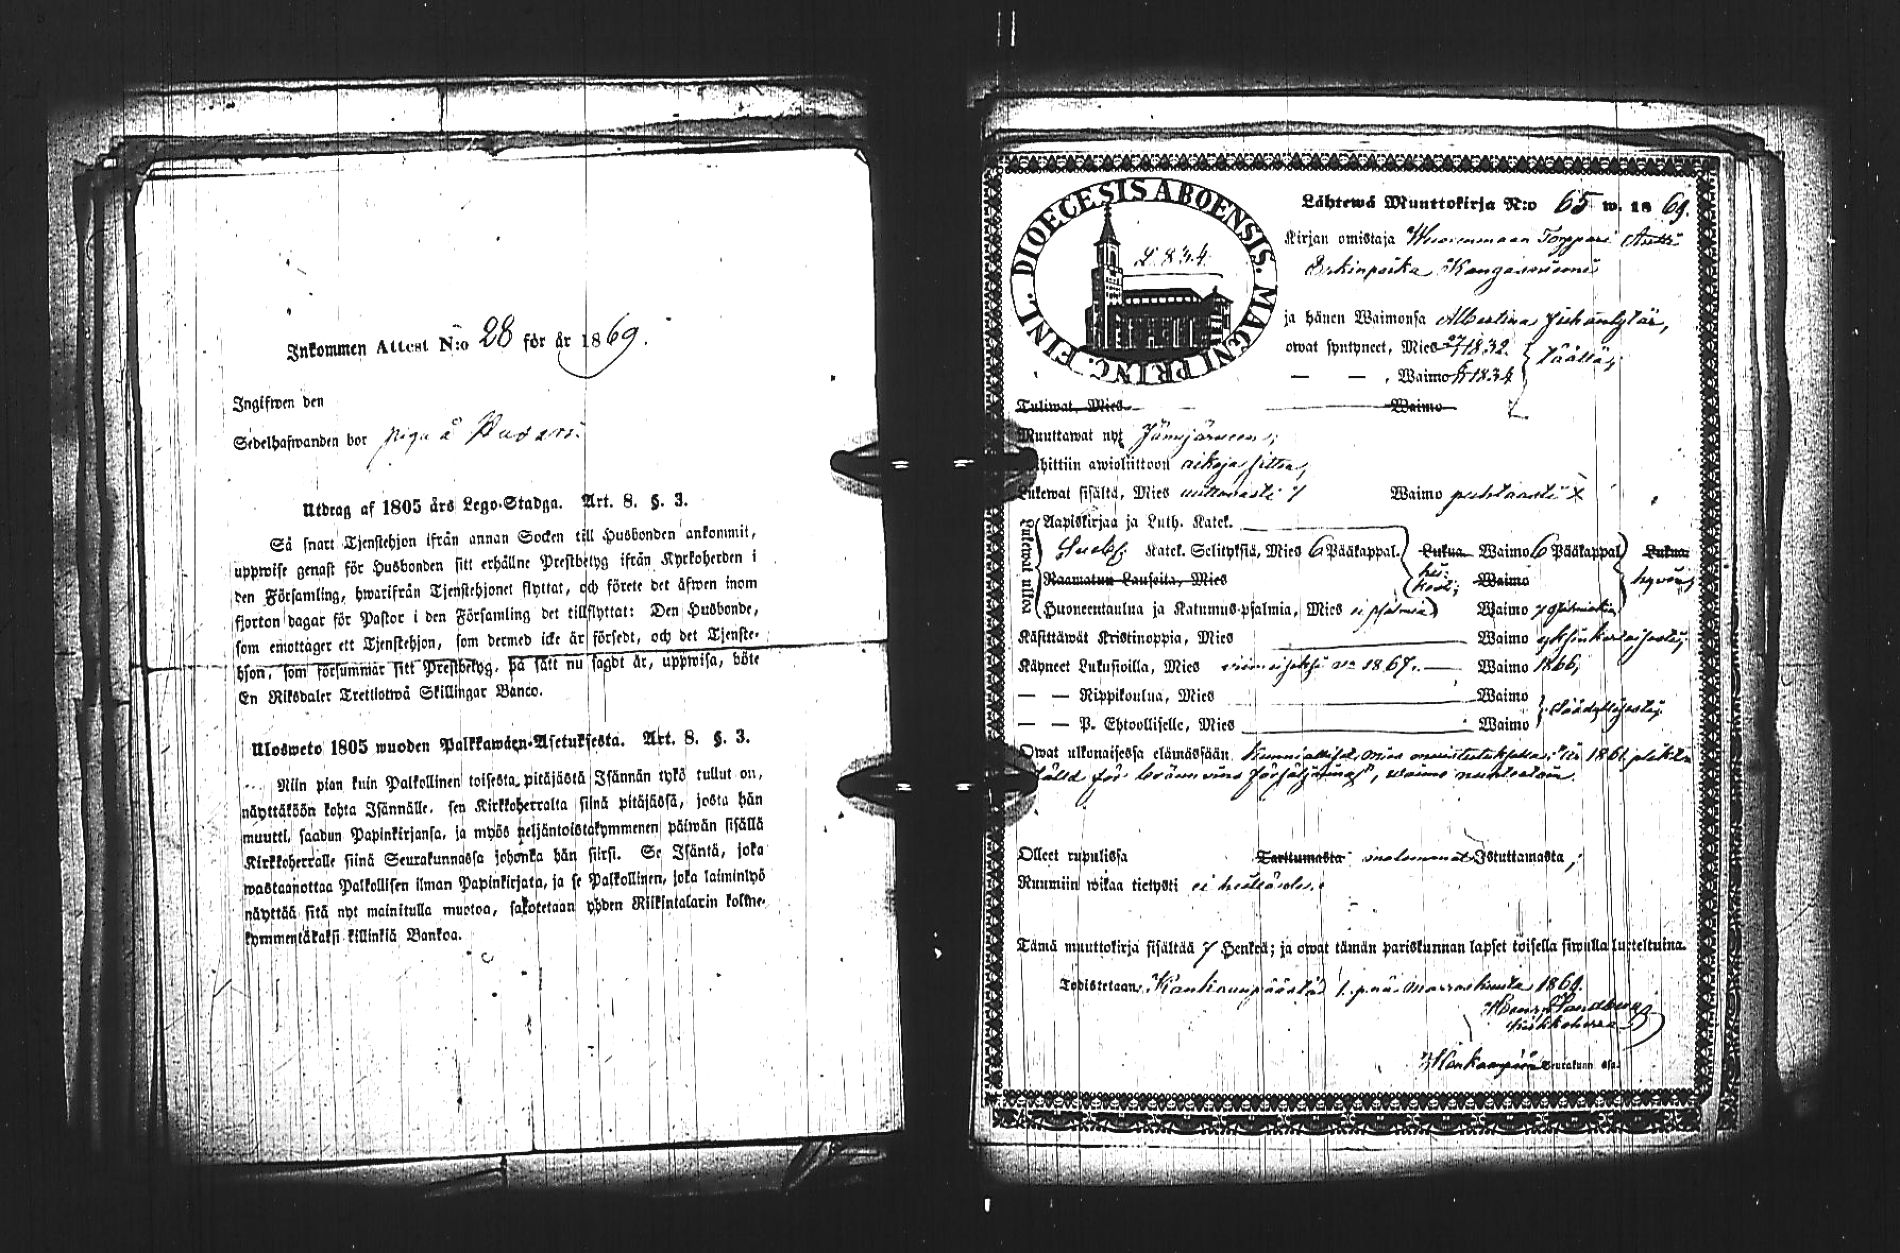 Inkommen Attest N:o 28 för år 1869.
Ingifwen den
Sedelhafwanden bor piga å
Utdrag af 1805 års Lego-Stadga. Art. 8. §. 3.
Så snart Tjenstehjon ifrån annan Socken till Husbonden ankommit,
uppwise genast för Husbonden sitt erhållne Prestbetyg ifrån Kyrkoherden i
den Församling, hwarifrån Tjenstehjonet flyttat, och förete det äfwen inom
fjorton dagar för Pastor i den Församling det tillflyttat: Den Husbonde,
som emottager ett Tjenstehjon, som dermed icke är försedt, och det Tjenste-
hjon, som försummar sitt Prestbetyg, på sätt nu sagdt är, uppwisa, böte
En Riksdaler Trettiotwå Skillingar Banco.
Ulosweto 1805 wuoden Palkkawäen-Asetuksesta. Art. 8. §. 3.
Niin pian kuin Palkollinen toisesta pitäjästä Isännän tykö tullut on,
näyttäköön kohta Isännälle, sen Kirkkoherralta siinä pitäjässä, josta hän
muutti, saadun Papinkirjansa, ja myös neljäntoistakymmenen päiwän sisällä
Kirkkoherralle siinä Seurakunnassa johonka hän siirsi. Se Isäntä, joka
wastaanottaa Palkollisen ilman Papinkirjata, ja se Palkollinen, joka laiminlyö
näyttää sitä nyt mainitulla muotoa, sakotetaan yhden Riikintalarin kolme-
kymmentäkaksi killinkiä Bankoa.
FINL. DIOECESIS ABOENSIS. MAGNI PRINC.
L. 834.
Lähtewä Muuttokirja N:o 65 w. 1869.
Kirjan omistaja Torppari Antti
Erkinpoika Kangasniemi
ja hänen Waimonsa Albertina Juhontytär,
owat syntyneet, Mies 1832.
— — , Waimo 1834 täällä;
Tuliwat, Mies Waimo
Muuttawat nyt Jämijärween;
Wihittiin awioliittoon aikoja sitten,
Lukewat sisältä, Mies Waimo puhtaasti X
Lukewat ulkoa
Aapiskirjaa ja Luth. Katek.
Katek. Selityksiä, Mies 6 Pääkappal. Lukua Waimo 6 Pääkappal. Lukua
Raamatun Lauseita, Mies Waimo hyvin;
Huoneentaulua ja Katumus-psalmia, Mies ei psalmia Waimo
Käsittäwät Kristinoppia, Mies Waimo yksinkertaisesti;
Käyneet Lukusioilla, Mies viimeiseksi w. 1867. Waimo 1866;
— — Rippikoulua, Mies Waimo
— — P. Ehtoolliselle, Mies Waimo säädyllisesti;
Owat ulkonaisessa elämässään kunnialliset, mies muistutuksella: "är 1861 pliktfälld för brännvins försäljning", waimo nuhteetoin.
Olleet rupulissa Tarttumasta molemmat Istuttamasta;
Ruumiin wikaa tietysti ei
Tämä muuttokirja sisältää 7 Henkeä; ja owat tämän pariskunnan lapset toisella siwulla lueteltuina.
Todistetaan, Kankaanpäästä 1. päiv. Marraskuuta 1869.
Sandberg
kirkkoherra
Kankaanpään Seurakunn asa.